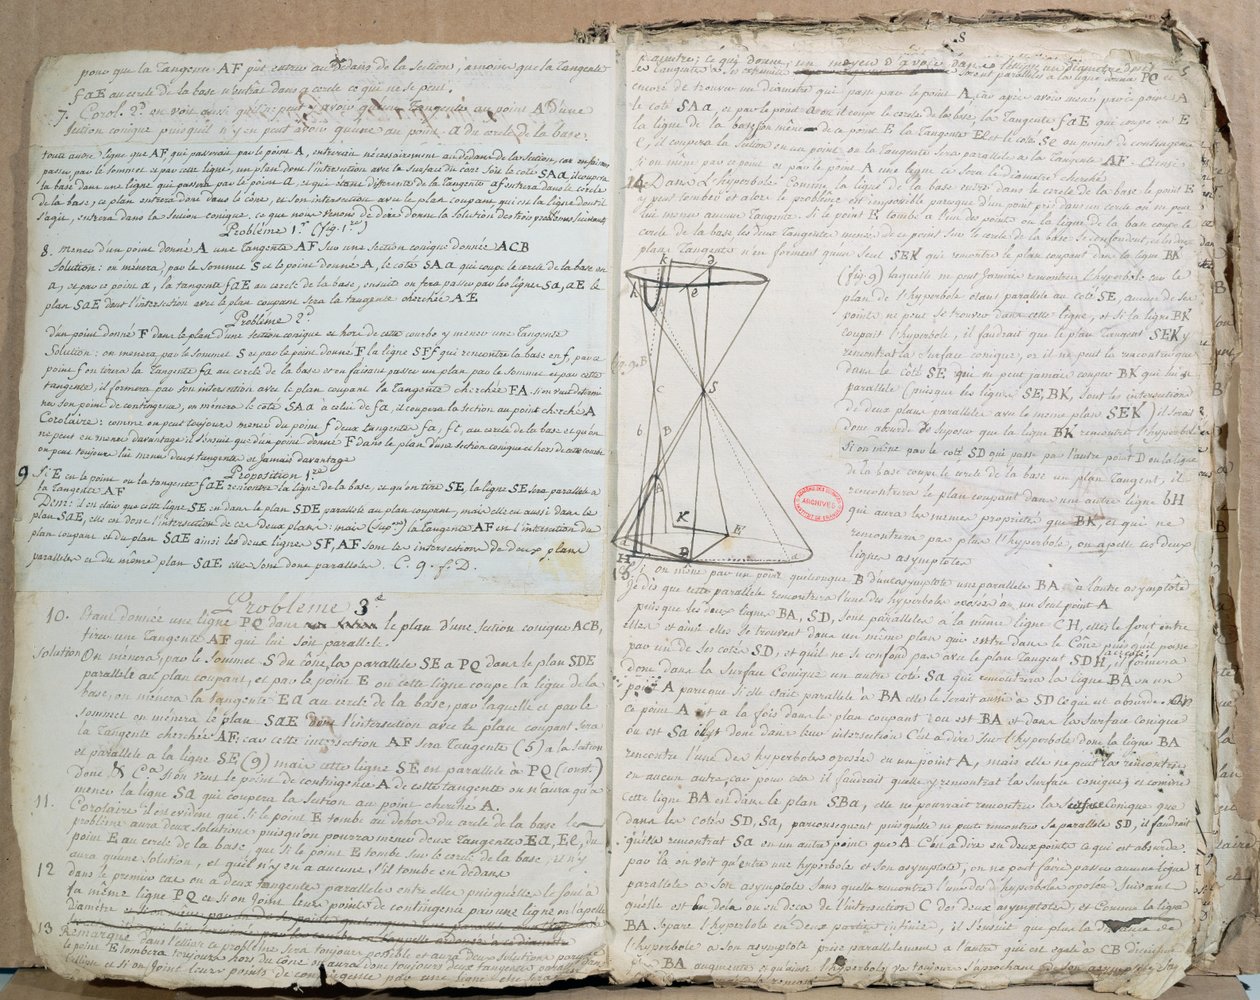 pour que la Tangente AF put entrer au dedans de la Section, à moins que la Tangente
faE au cercle de la base n'entrat dans ce cercle ce qui ne se peut.
7. Corol. 2. on voit aussi qu'il ne peut y avoir qu'une Tangente au point A d'une
Section conique puisqu'il n'y en peut avoir qu'une au point a du cercle de la base.
toute autre ligne que AF qui passerait par le point A, entrerait nécessairement au dedans de la Section, car en faisant
passer par le sommet et par cette ligne, un plan dont l'intersection avec la surface du cone soit le coté SAa, il coupera
la base dans une ligne qui passera par le point a, et qui étant différente de la Tangente af entrera dans le cercle
de la base; ce plan entrera donc dans le cône, et son intersection avec le plan coupant qui est la ligne dont il
s'agit, entrera dans la section conique. ce que nous venons de dire donne la solution des trois problêmes suivants
Problême 1.er (fig. 1.re)
8. mener d'un point donné A une Tangente AF sur une Section conique donnée ACB
Solution: on ménera, par le sommet S et le point donné A, le coté SAa qui coupe le cercle de la base en
a, et par ce point a, la tangente faE au cercle de la base, ensuite on fera passer par les lignes Sa, aE le
plan SaE dont l'intersection avec le plan coupant sera la tangente cherchée AE
Problême 2.d
d'un point donné F dans le plan d'une section conique et hors de cette courbe y mener une Tangente
Solution: on ménera par le sommet S et par le point donné F la ligne SFf qui rencontre la base en f, par ce
point f on tirera la Tangente fa au cercle de la base et en faisant passer un plan par le sommet et par cette
tangente, il formera par son intersection avec le plan coupant la Tangente cherchée FA. si on veut determi
ner son point de contingence, on ménera le coté SAa à celui de fa, il coupera la Section au point cherché A
Corolaire: comme on peut toujours mener du point f deux tangentes fa, ft, au cercle de la base et qu'on
ne peut en mener davantage; il s'ensuit que d'un point donné F dans le plan d'une section conique et hors de cette courbe
on peut toujours lui mener deux tangentes et jamais davantage
Proposition 1.re
9 Si E est le point ou la tangente faE rencontre la ligne de la base, et qu'on tire SE, la ligne SE sera parallele a
la tangente AF
Dem: il est clair que cette ligne SE est dans le plan SDE parallele au plan coupant, mais elle est aussi dans le
plan SaE, elle est donc l'intersection de ces deux plans: mais (sup.on) la Tangente AF est l'intersection du
plan coupant et du plan SaE ainsi les deux lignes SE, AF sont les intersections de deux plans
paralleles et du même plan SaE elles sont donc paralleles. C. q. f. D.
Problème 3.e
10. Etant donnée une ligne PQ dans le plan d'une Section conique ACB,
tirer une Tangente AF qui lui soit parallele.
Solution On ménera, par le sommet S du cône, la parallele SE a PQ dans le plan SDE
parallele au plan coupant, et par le point E ou cette ligne coupe la ligne de la
base, on ménera la tangente Ea au cercle de la base, par laquelle et par le
sommet on ménera le plan SaE dont l'intersection avec le plan coupant sera
la Tangente cherchée AF, car cette intersection AF sera Tangente (5) a la Section
et parallele a la ligne SE (9) mais cette ligne SE est parallele à PQ (const.)
donc &c.a Si on veut le point de contingence A de cette tangente on n'aura qu'a
mener la ligne Sa qui coupera la Section au point cherché A.
11. Corolaire il est evident que si le point E tombe au dehors du cercle de la base le
problême aura deux Solutions puisqu'on pourra mener deux Tangentes Ea, El, du
point E au cercle de la base, que si le point E tombe sur le cercle de la base, il n'y
aura qu'une Solution, et qu'il n'y en a aucune s'il tombe en dedans
12 dans le premier cas on a deux tangentes paralleles entre elles puisqu'elles le sont à
la même ligne PQ et si on joint leurs points de contingence par une ligne on l'apelle
diamêtre
13 Remarque dans l'ellipse ce problême sera toujours possible et aura deux Solutions parce que
le point E tombera toujours hors du cône ou aura donc toujours deux tangentes paralleles
l'ellipse et si on joint leurs points de contingence par une ligne elle sera
5
diamêtre; ce qui donne un moyen d'avoir dans
les tangentes a ses extremités soient paralleles à la ligne donnée PQ et
encore de trouver un diamêtre qui passe par le point A, car après avoir mené par le point A
le coté SAa, et par le point a ou il coupe le cercle de la base, la Tangente faE qui coupe en E
la ligne de la base on ménera de ce point E la Tangente El et le coté Se au point de contingence
l, il coupera la Section en un point ou la Tangente sera parallele a la Tangente AF. Ainsi
si on mène par ce point et par le point A une ligne ce sera le diamêtre cherché
14. Dans l'hyperbole comme la ligne de la base entre dans le cercle de la base le point E
y peut tomber et alors le problême est impossible parceque d'un point pris dans un cercle on ne peut
lui mener aucune Tangente. Si le point E tombe a l'un des points ou la ligne de la base coupe le
cercle de la base, les deux Tangentes menées de ce point sur le cercle de la base se confondent, et les deux
plans Tangents n'en forment qu'un seul SEK qui rencontre le plan coupant dans la ligne BK
(fig 9) laquelle ne peut jamais rencontrer l'hyperbole car le
plan de l'hyperbole étant parallele au coté SE, aucun de ses
points ne peut se trouver dans cette ligne, et si la ligne BK
coupait l'hyperbole, il faudrait que le plan Tangent SEK y
rencontrat la surface conique, or il ne peut la rencontrer que
dans le coté SE qui ne peut jamais couper BK qui lui est
parallele (puisque les lignes SE, BK, sont les intersections
de deux plans paralleles avec le même plan SEK) il serait
donc absurde de suposer que la ligne BK rencontre l'hyperbole
Si on mène par le coté SD qui passe par l'autre point D ou la ligne
de la base coupe le cercle de la base un plan Tangent, il
rencontrera le plan coupant dans une autre ligne bH
qui aura les memes propriétés que BK, et qui ne
rencontrera pas plus l'hyperbole, on apelle ces deux
lignes asymptotes
fig. 9.
k
h
e
B
C
S
b
D
A
K
E
H
D
a
ACADÉMIE DES SCIENCES
ARCHIVES
INSTITUT DE FRANCE
15 Si on mène par un point quelconque B d'une asymptote une parallele BA à l'autre asymptote
Je dis que cette parallele rencontrera l'une des hyperboles oposées en un seul point A
puisque les deux lignes BA, SD, sont paralleles a la même ligne CH, elles le sont entre
elles et ainsi elles se trouvent dans un même plan qui entre dans le Cône puisqu'il passe
par un de ses cotés SD, et qu'il ne se confond pas avec le plan Tangent SDH, il formera
donc dans la surface Conique un autre coté Sa qui rencontrera la ligne BA en un
point A parceque si elle était parallele à BA elle le serait aussi à SD ce qui est absurde
ce point A est a la fois dans le plan coupant ou est BA et dans la surface conique
ou est Sa il est donc dans leur intersection C'est à dire sur l'hyperbole donc la ligne BA
rencontre l'une des hyperboles oposées en un point A, mais elle ne peut la rencontrer
en aucun autre, car pour cela il faudrait qu'elle y rencontrat la surface conique; et comme
cette ligne BA est dans le plan SBa, elle ne pourrait rencontrer la surface conique que
dans les cotés SD, Sa, parconsequent puisqu'elle ne peut rencontrer sa parallele SD, il faudrait
qu'elle rencontrat Sa en un autre point que A C'est à dire en deux points ce qui est absurde.
par la on voit qu'entre une hyperbole et son asymptote, on ne peut faire passer aucune ligne
parallele a son asymptote sans qu'elle rencontre l'une des hyperboles oposées suivant
qu'elle est au dela ou en deca de l'intersection C des deux asymptotes et comme la ligne
BA separe l'hyperbole en deux parties infinies, il s'ensuit que plus la distance de
l'hyperbole a son asymptote prise parallelement a l'autre qui est egale à CB diminue
BA augmente et qu'ainsi l'hyperbole va toujours s'aprochant de son asymptote